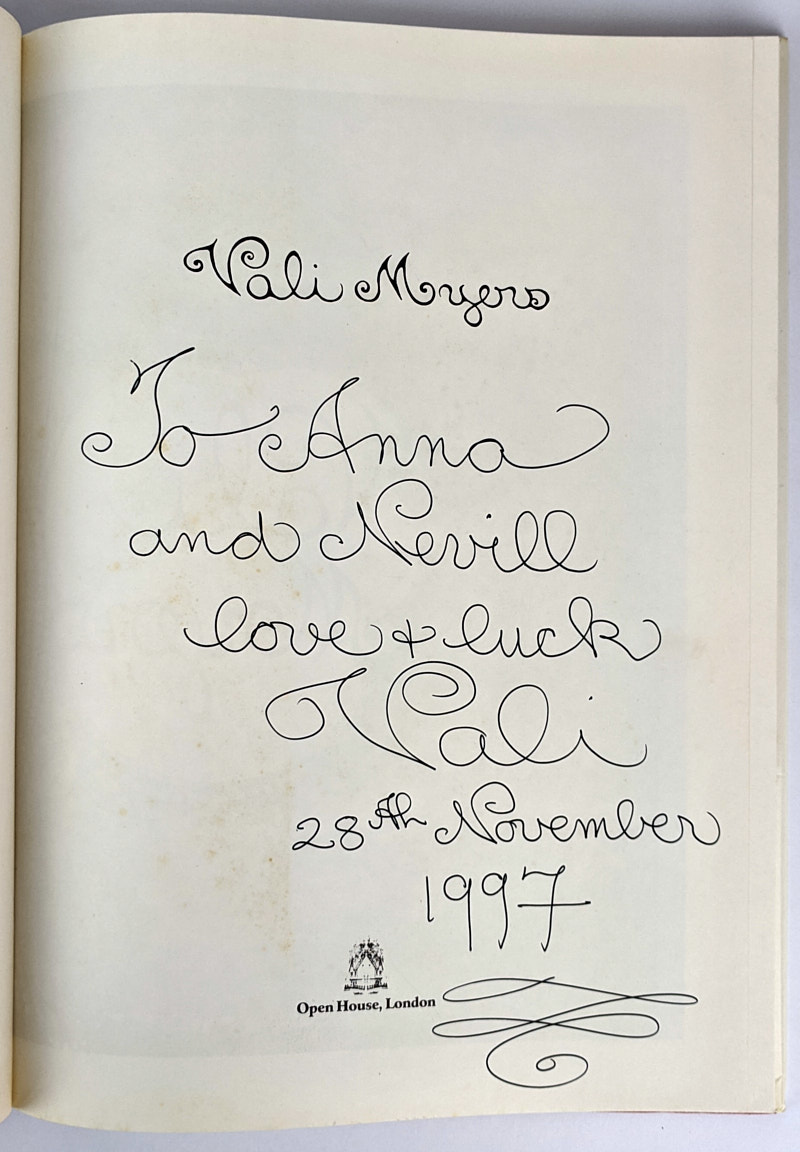 Vali Myers
To Anna
and Nevill
love + luck
Vali
28th November
1997
Open House, London